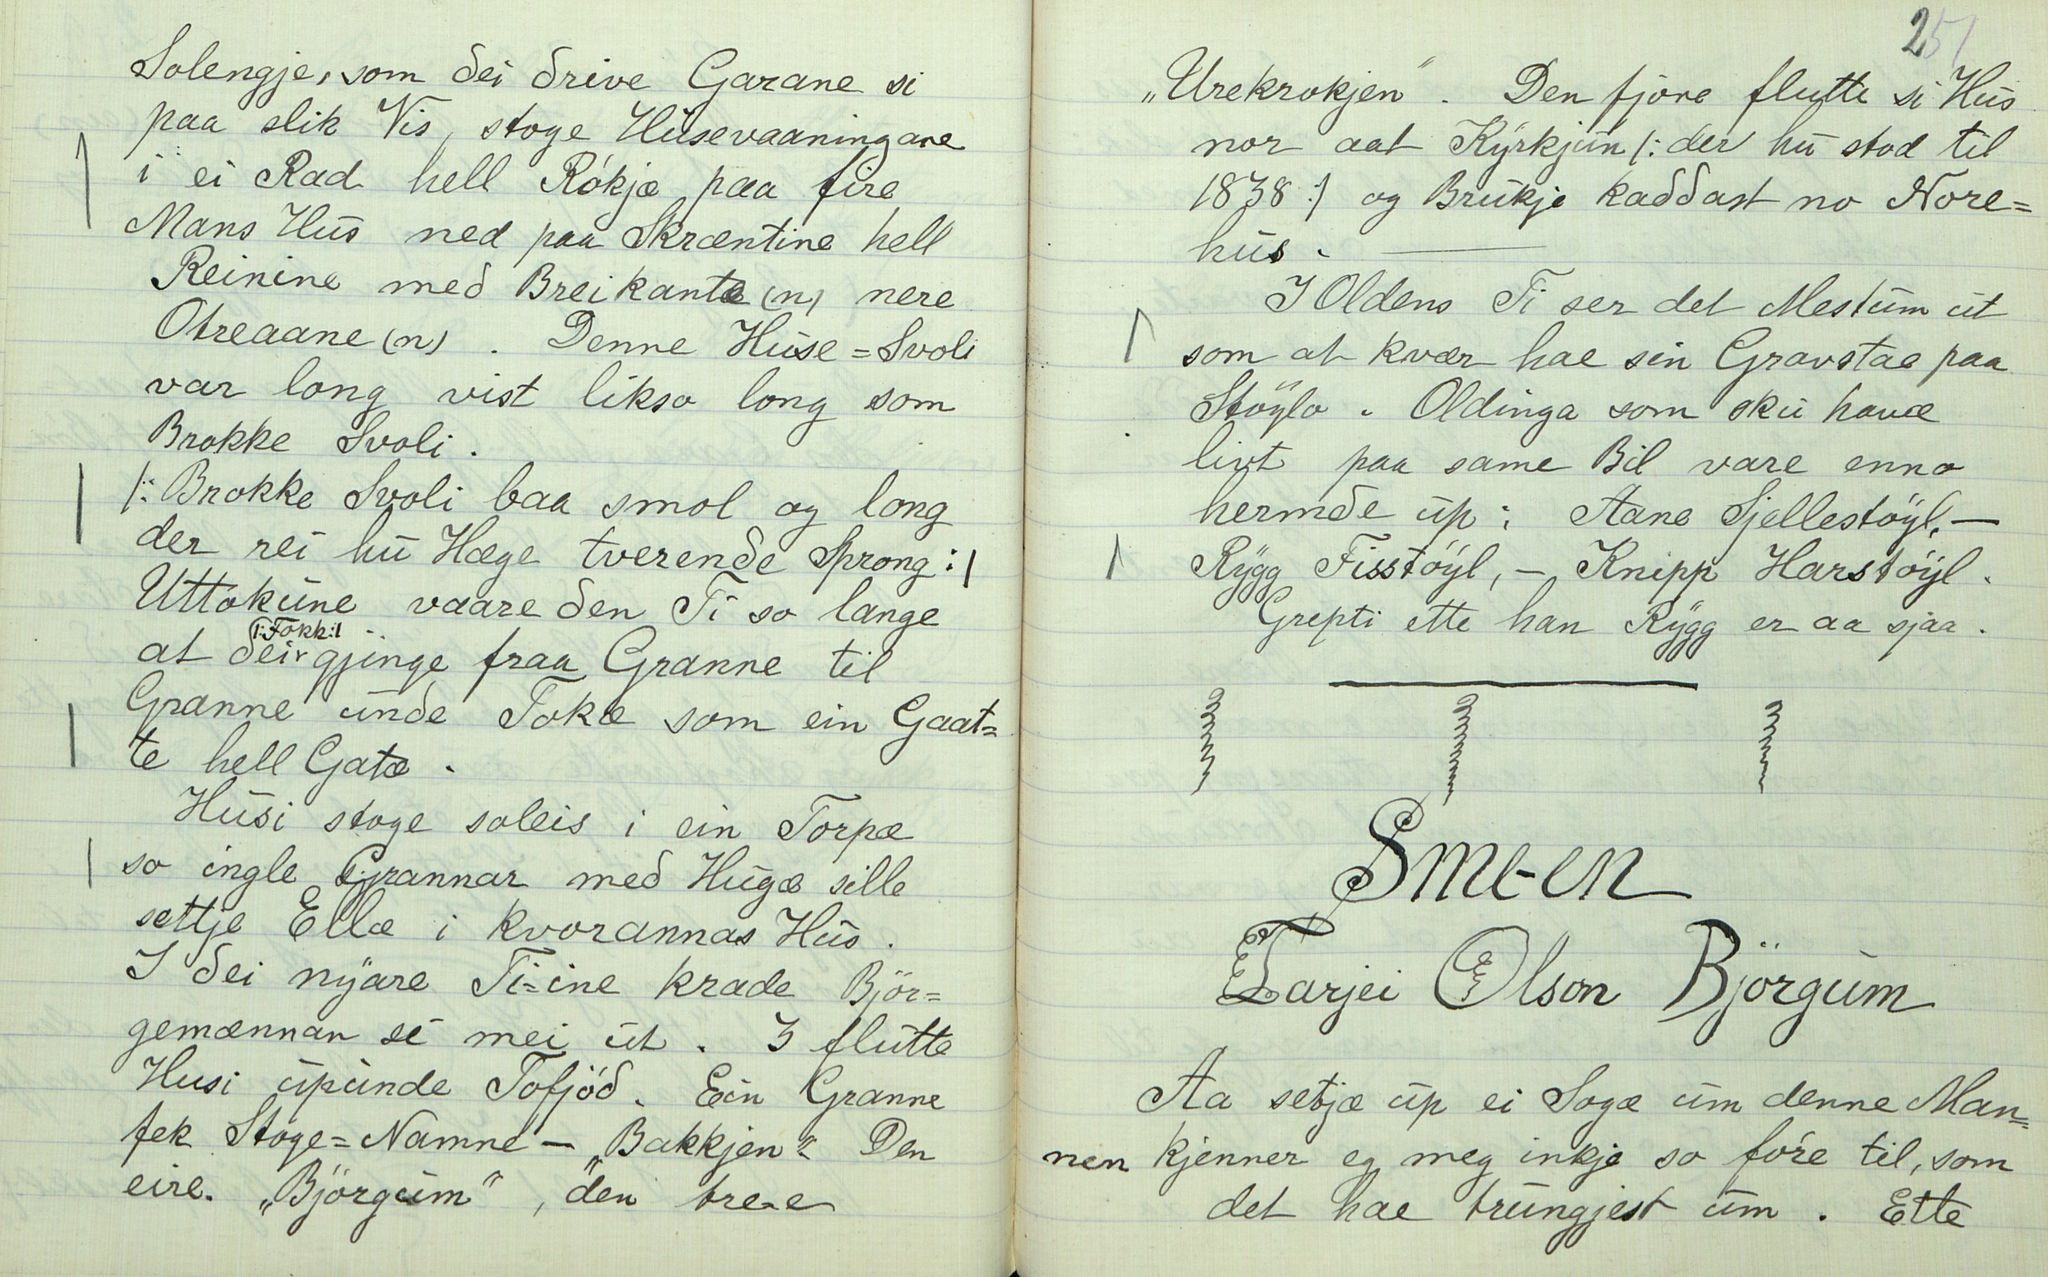 Solengje, som dei drive Garane si
paa slik Vis, stoge Husevaaningane
i ei Rad hell Rókjæ paa fire
Mans Hus ned paa Skræntine hell
Reinine med Breikantæ (n) nere
Otreaane (n). Denne Huse=Svoli
var long vist likso long som
Brokke Svoli.
/: Brokke Svoli baa smol og long
der rei hu Hæge tverende Sprong :/
Uttokune vaare den Ti so lange
/:Fokk:/
at dei gjinge fraa Granne til
Granne unde Tokæ som ein Gaat=
te hell Gatæ.
Husi stoge soleis i ein Torpæ
so ingle Grannar med Hugæ sille
settje Ellæ i kvorannas Hus.
I dei nyare Ti=ine krade Björ=
gemænnan si mei ut. 3 flutte
Husi upunde Tofjöd. Ein Granne
fek Stoge=Namne — „Bakkjen“. Den
eire. „Björgum“, den tre-e
251
„Urekrokjen“. Den fjöre flutte si Hus
nor aat Kyrkjun /: der hu stod til
1838 :/ og Brukje kaddast no Nore=
hus.
I Oldens Ti ser det Mestum ut
som at kvær hae sin Gravstae paa
Stöylo. Oldinga som sku havæ
livt paa same Bil vare enno
hermde up: Aane Sjellestöyl, —
Rygg Fisstöyl, — Knipp Harstöyl.
Grepti ette han Rygg er aa sjaa.
Sme-en
Tarjei Olson Björgum
Aa setjæ up ei Sogæ um denne Man=
nen kjenner eg meg inkje so före til, som
det hae trungjest um. Ette